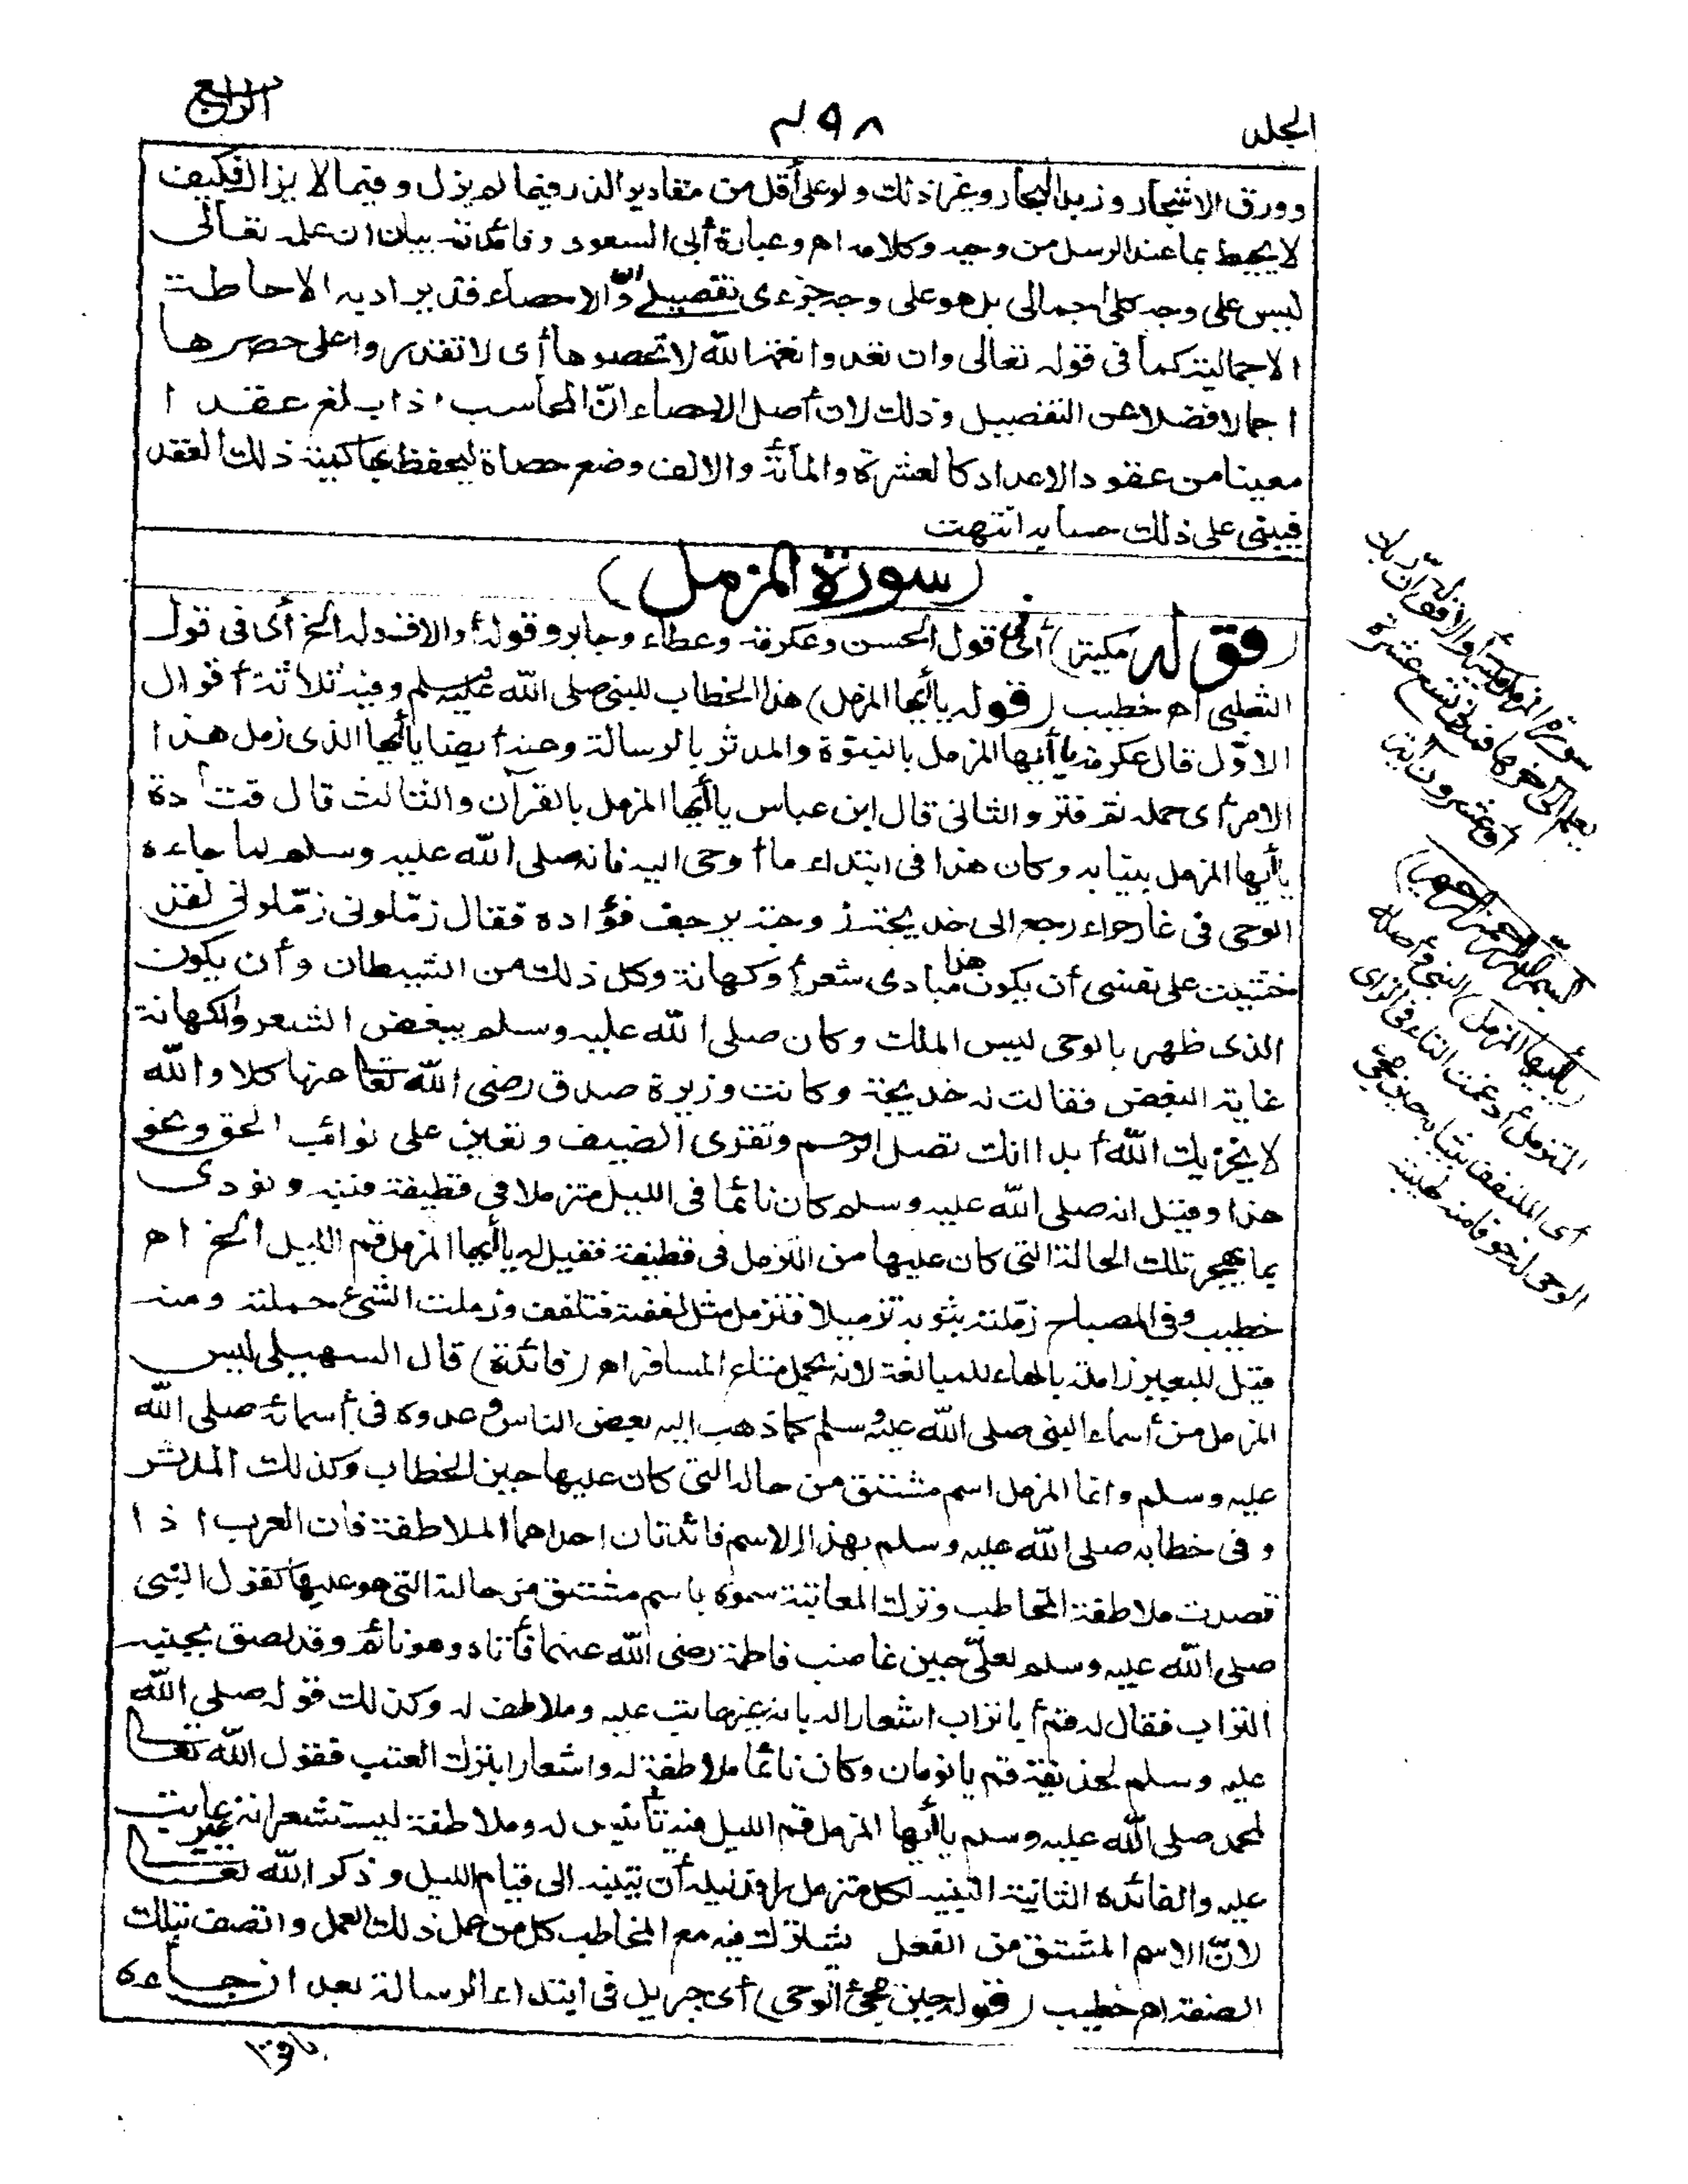 الجلد
٤٩٨
الرابع
وورق الاشجار وزبد البحار وغير ذلك ولو على أقل من مقادير الذر فيما لم يزل وفيما لا يزال فكيف
لا يحيط بما عند الرسل من وحيه وكلامه اهـ وعبارة أبى السعود وفائدته بيان ان علمه تعالى
ليس على وجه كلى اجمالى بل هو على وجه جزءى تفصيلى وانّ الاحصاء قد يراد به الاحاطة
الاجمالية كما فى قوله تعالى وان تعدوا نعمة الله لا تحصوها أى لا تقدروا على حصرها
اجمالا فضلا عن التفصيل وذلك لان أصل الاحصاء انّ المحاسب اذا بلغ عقدا
معينا من عقود الاعداد كالعشرة والمائة والالف وضع حصاة ليحفظ بها كمية ذلك العقد
فيبنى على ذلك حسابه انتهت
(سورة المزمل)
(قوله مكية) أى فى قول الحسن وعكرمة وعطاء وجابر وقوله أو الا قوله الخ أى فى قول
الثعلبى اهـ خطيب (قوله يا أيها المزمل) هذا الخطاب للنبى صلى الله عليه وسلم وفيه ثلاثة أقوال
الاوّل قال عكرمة يا أيها المزمل بالنبوّة والمدثر بالرسالة وعنه أيضا يا أيها الذى زمل هذا
الامر أى حمله ثم فتر والثانى قال ابن عباس يا أيها المزمل بالقرآن والثالث قال قتادة
يا أيها المزمل بثيابه وكان هذا فى ابتداء ما أوحى اليه فانه صلى الله عليه وسلم لما جاءه
الوحى فى غار حراء رجع الى خديجة زوجته يرجف فؤاده فقال زمّلونى زمّلونى لقد
خشيت على نفسى أن يكون هذا مبادى شعر أو كهانة وكل ذلك من الشيطان وأن يكون
الذى ظهر بالوحى ليس الملك وكان صلى الله عليه وسلم يبغض الشعر والكهانة
غاية البغض فقالت له خديجة وكانت وزيرة صدق رضى الله تعا عنها كلا والله
لا يخزيك الله أبدا انك تصل الرحم وتقرى الضيف وتعين على نوائب الحق ونحو
هذا وقيل انه صلى الله عليه وسلم كان نائما فى الليل متزملا فى قطيفة فنبه ونودى
بما يهجر تلك الحالة التى كان عليها من التزمل فى قطيفة فقيل له يا أيها المزمل قم الليل الخ اهـ
خطيب وفى المصباح زمّلته بثوبه تزميلا فتزمل مثل لففته فتلفف وزملت الشئ حملته ومنه
قيل للبعير زاملة بالهاء للمبالغة لانه يحمل متاع المسافر اهـ (فائدة) قال السهيلى ليس
المزمل من أسماء النبى صلى الله عليه وسلم كما ذهب اليه بعض الناس وعدوه فى أسمائه صلى الله
عليه وسلم وانما المزمل اسم مشتق من حاله التى كان عليها حين الخطاب وكذلك المدثر
وفى خطابه صلى الله عليه وسلم بهذا الاسم فائدتان احداهما الملاطفة فان العرب اذا
قصدت ملاطفة المخاطب وترك المعاتبة سموه باسم مشتق من حالته التى هو عليها كقول النبى
صلى الله عليه وسلم لعلىّ حين غاضب فاطمة رضى الله عنهما فأتاه وهو نائم وقد لصق بجنبه
التراب فقال له قم أبا تراب اشعارا له بانه غير عاتب عليه وملاطف له وكذلك قوله صلى الله
عليه وسلم لحذيفة قم يا نومان وكان نائما ملاطفة له واشعارا بترك العتب فقول الله تعا
لمحمد صلى الله عليه وسلم يا أيها المزمل قم الليل فيه تأنيس له وملاطفة ليستشعر انه غير عاتب
عليه والفائدة الثانية التنبيه لكل متزمل راقد ليله أن يتنبه الى قيام الليل وذكر الله تعا
لانّ الاسم المشتق من الفعل يشترك فيه مع المخاطب كل من عمل ذلك العمل واتصف بتلك
الصفة اهـ خطيب (قوله حين مجئ الوحى) أى جبريل فى ابتداء الرسالة بعد ان جاءه
سورة المزمل مكية أو الا قوله ان ربك
يعلم الى آخرها فمدنى تسع عشرة
أو عشرون آية
(بسم الله الرحمن الرحيم)
(يا أيها المزمل) النبى وأصله
المتزمل أدغمت التاء فى الزاى
أى المتلفف بثيابه حين مجئ
الوحى له خوفا منه لهيبته